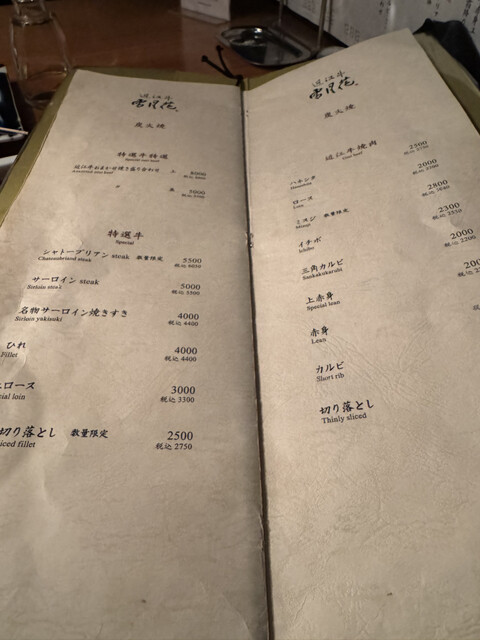 近江牛
雪月花
炭火焼
特選牛特選
近江牛おまかせ焼き盛り合わせ 上 8000
Assorted omi beef
並 5000
特選牛
Special
シャトーブリアン steak 数量限定 5500
Chateaubriand steak 税込 6050
サーロイン steak 5000
Sirloin steak 税込 5500
名物サーロイン焼きすき 4000
Sirloin yakisuki 税込 4400
ひれ 4000
Fillet 税込 4400
ロース 3000
loin 税込 3300
切り落とし 数量限定 2500
fillet 税込 2750
近江牛
雪月花
炭火焼
近江牛焼肉
Omi beef
ハラミ 2500
ロース 2000
ミスジ 数量限定 2800
Misuji
イチボ 2300
Ichibo 税込 2530
三角カルビ 2000
Sankakukarubi 税込 2200
上赤身
Special lean
赤身
Lean
カルビ
Short rib
切り落とし
Thinly sliced